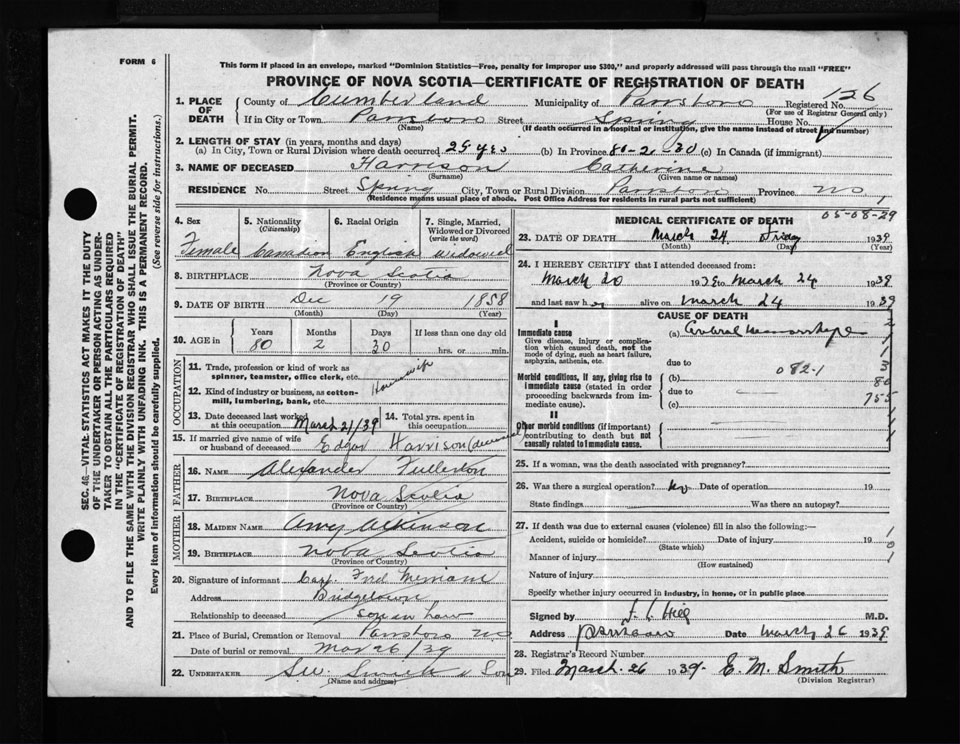 FORM 6
This form if placed in an envelope, marked "Dominion Statistics—Free, penalty for improper use $300," and properly addressed will pass through the mail "FREE"
PROVINCE OF NOVA SCOTIA—CERTIFICATE OF REGISTRATION OF DEATH
1. PLACE OF DEATH County of Cumberland Municipality of Parrsboro Registered No. 126
(For use of Registrar General only)
If in City or Town Parrsboro Street Spring House No.
(Name) (If death occurred in a hospital or institution, give the name instead of street and number)
2. LENGTH OF STAY (in years, months and days)
(a) In City, Town or Rural Division where death occurred 29 yrs (b) In Province 80-2-30 (c) In Canada (if immigrant)
3. NAME OF DECEASED Harrison Catherine
(Surname) (Given name or names)
RESIDENCE No. Street Spring City, Town or Rural Division Parrsboro Province NS
(Residence means usual place of abode. Post Office Address for residents in rural parts not sufficient) 1
4. Sex Female
5. Nationality (Citizenship) Canadian
6. Racial Origin English
7. Single, Married, Widowed or Divorced (write the word) Widowed
8. BIRTHPLACE Nova Scotia
(Province or Country)
9. DATE OF BIRTH Dec 19 1858
(Month) (Day) (Year)
10. AGE in Years 80 Months 2 Days 30 If less than one day old hrs. or min.
OCCUPATION
11. Trade, profession or kind of work as spinner, teamster, office clerk, etc. Housewife
12. Kind of industry or business, as cotton-mill, lumbering, bank, etc.
13. Date deceased last worked at this occupation March 21/39
14. Total yrs. spent in this occupation
15. If married give name of wife or husband of deceased Edgar Harrison (deceased)
FATHER
16. NAME Alexander Fullerton
17. BIRTHPLACE Nova Scotia
(Province or Country)
MOTHER
18. MAIDEN NAME Amy Atkinson
19. BIRTHPLACE Nova Scotia
(Province or Country)
20. Signature of informant Capt. Fred Merriam
Address Bridgetown
Relationship to deceased son in law
21. Place of Burial, Cremation or Removal Parrsboro NS
Date of burial or removal Mar 26/39
22. UNDERTAKER Smith & Son
(Name and address)
MEDICAL CERTIFICATE OF DEATH
05-08-29
23. DATE OF DEATH March 24 Friday 1939
(Month) (Day) (Year)
24. I HEREBY CERTIFY that I attended deceased from:
March 20 1939 to March 24 1939
and last saw her alive on March 24 1939
CAUSE OF DEATH
I
Immediate cause (a) Cerebral Hemorrhage
Give disease, injury or complication which caused death, not the mode of dying, such as heart failure, asphyxia, asthenia, etc.
due to
Morbid conditions, if any, giving rise to immediate cause (stated in order proceeding backwards from immediate cause). (b) 082-1
due to
(c)
II
Other morbid conditions (if important) contributing to death but not causally related to immediate cause.
25. If a woman, was the death associated with pregnancy?
26. Was there a surgical operation? No Date of operation 19
State findings Was there an autopsy?
27. If death was due to external causes (violence) fill in also the following:—
Accident, suicide or homicide? Date of injury 19
(State which)
Manner of injury
(How sustained)
Nature of injury
Specify whether injury occurred in industry, in home, or in public place
Signed by M.D.
Address Parrsboro Date March 26 1939
28. Registrar's Record Number
29. Filed March 26 1939 E. M. Smith
(Division Registrar)
SEC. 46—VITAL STATISTICS ACT MAKES IT THE DUTY OF THE UNDERTAKER OR PERSON ACTING AS UNDERTAKER TO OBTAIN ALL THE PARTICULARS REQUIRED IN THE "CERTIFICATE OF REGISTRATION OF DEATH" AND TO FILE THE SAME WITH THE DIVISION REGISTRAR WHO SHALL ISSUE THE BURIAL PERMIT.
WRITE PLAINLY WITH UNFADING INK. THIS IS A PERMANENT RECORD.
Every item of information should be carefully supplied. (See reverse side for instructions.)